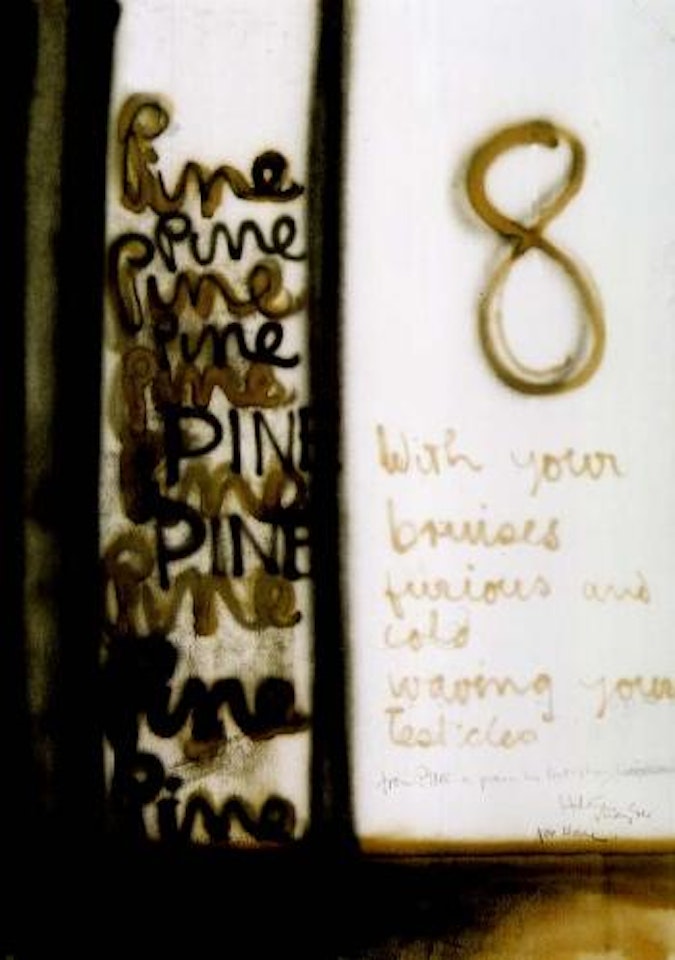 Pine
Pine
Pine
Pine
Pine
PINE
Pine
PINE
Pine
Pine
Pine
8
With your
bruises
furious and
cold
waving your
Testicles
from PINE a poem by
for